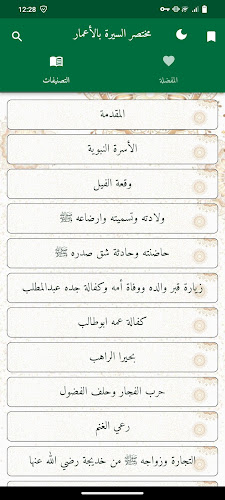 12:28
مختصر السيرة بالأعمار
التصنيفات
المفضلة
المقدمة
الأسرة النبوية
وقعة الفيل
ولادته وتسميته وارضاعه ﷺ
حاضنته وحادثة شق صدره ﷺ
زيارة قبر والده ووفاة أمه وكفالة جده عبدالمطلب
كفالة عمه ابوطالب
بحيرا الراهب
حرب الفجار وحلف الفضول
رعي الغنم
التجارة وزواجه ﷺ من خديجة رضي الله عنها